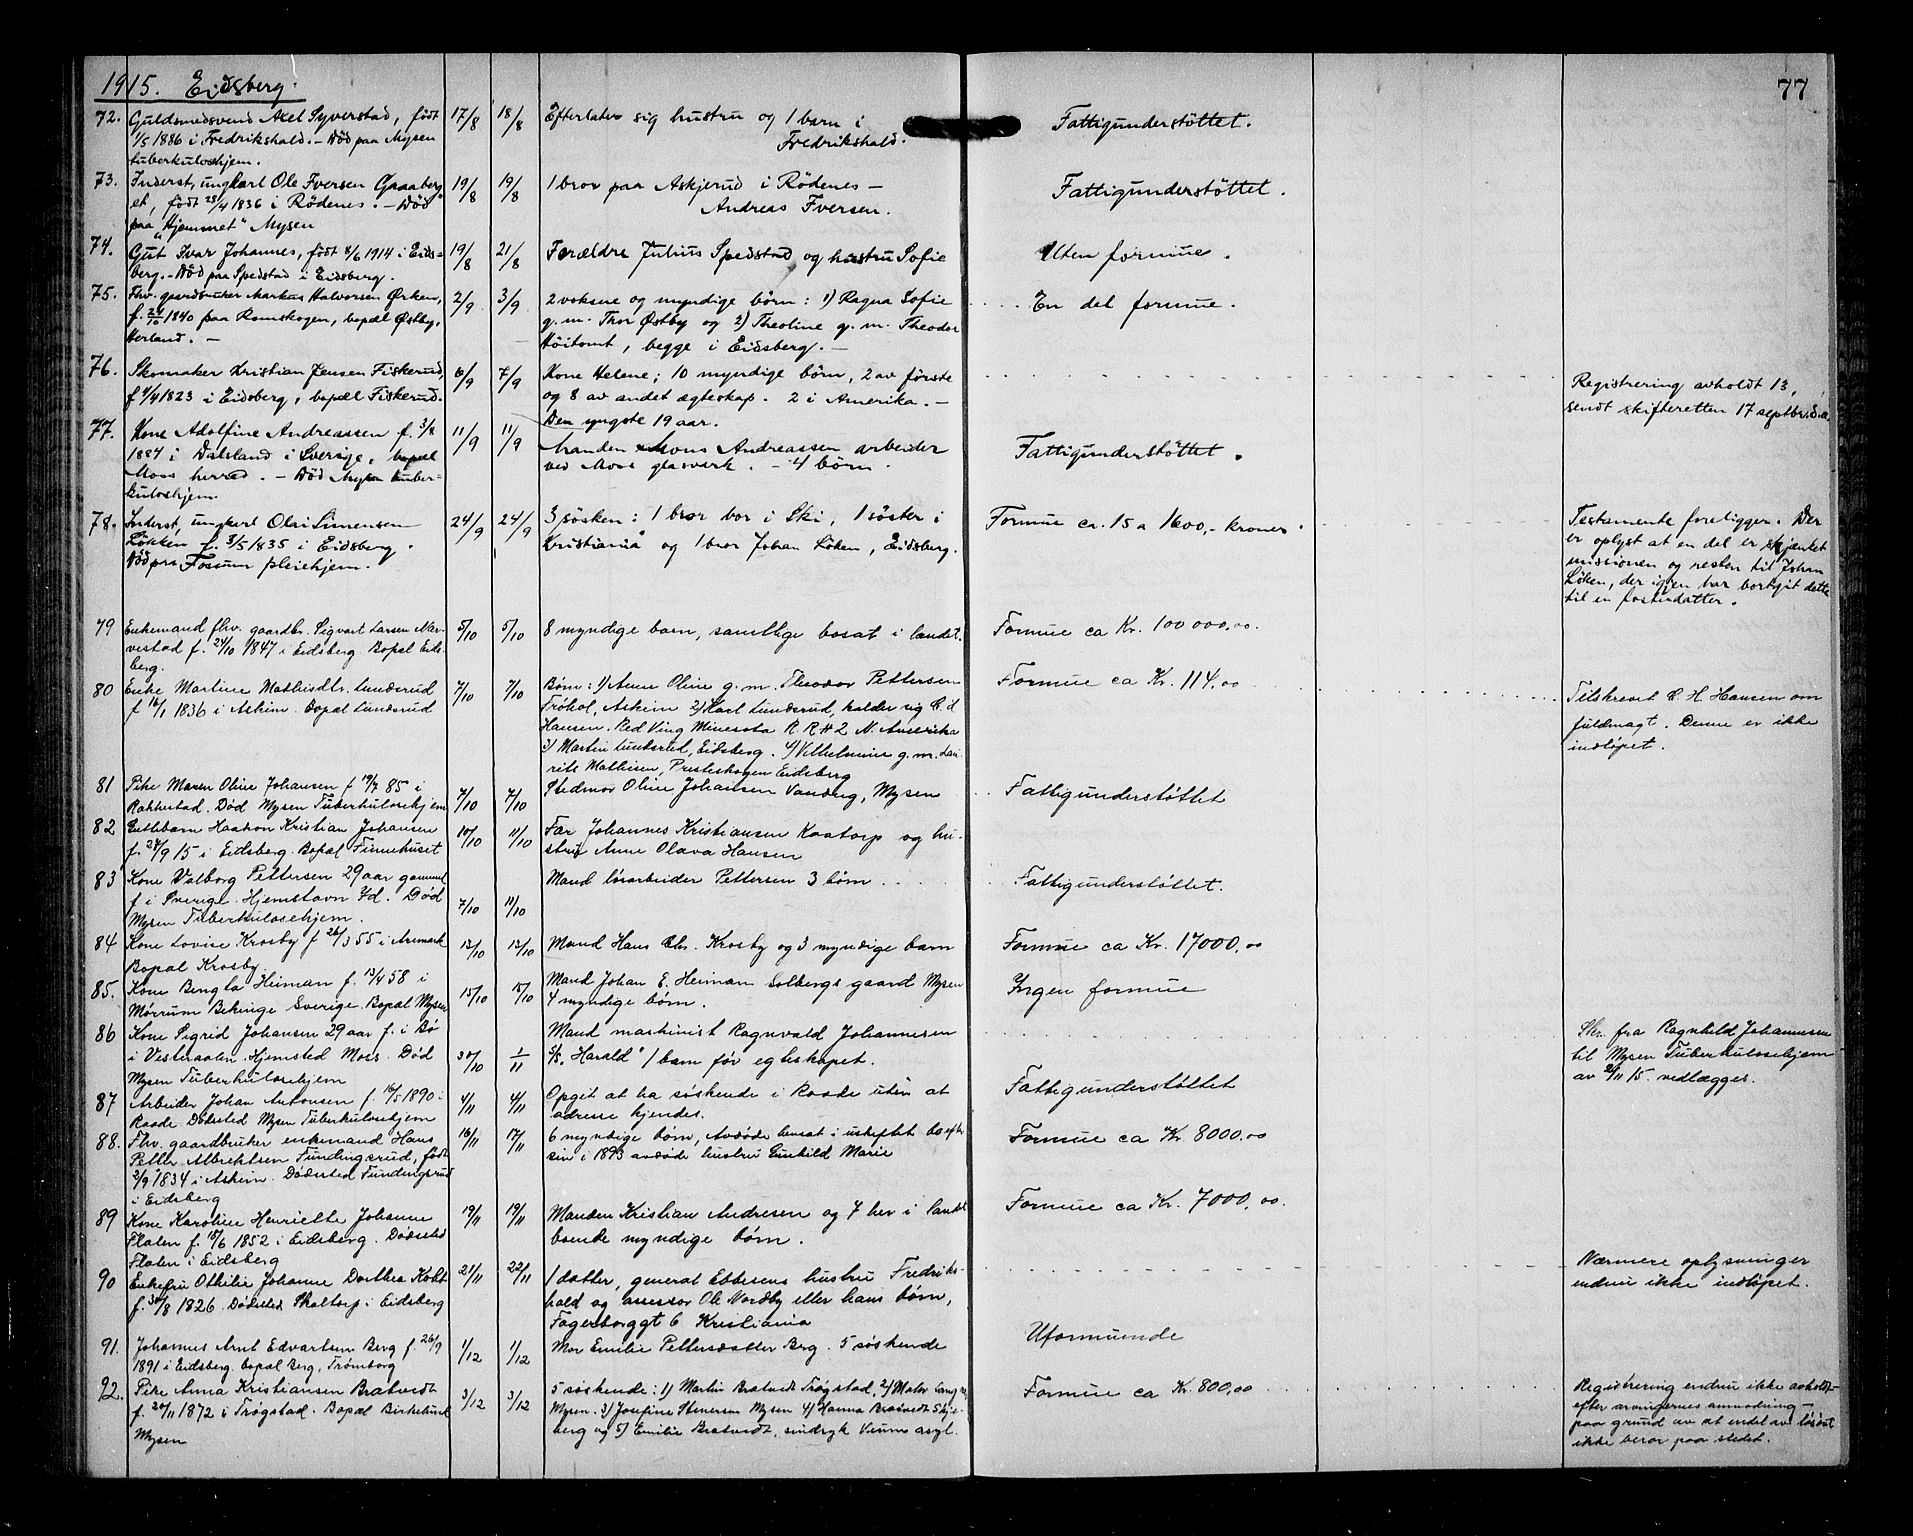 1915. Eidsberg.
77
72. Guldsmedsvend Axel Syverstad, født 17/8 18/8 Efterlater sig hustru og 1 barn i Fattigunderstöttet.
1/5 1886 i Fredrikshald. – Död paa Mysen Fredrikshald.
tuberkuloshjem.
73. Inderst, ungkarl Ole Iversen Graaberg- 19/8 19/8 1 bror paa Askjerud i Rödenes – Fattigunderstöttet.
et, født 28/4 1836 i Rödenes. – Död Andreas Iversen.
paa "Hjemmet" Mysen
74. Gut Ivar Johannes, födt 8/6 1914 i Eids- 19/8 21/8 Forældre Julius Spedstad og hustru Sofie Uten formue.
berg. – Död paa Spedstad i Eidsberg.
75. Fhv. gaardbruker Markus Halvorsen Ørken, 2/9 3/9 2 voksne og myndige börn: 1) Ragna Sofie En del formue.
f. 24/10 1840 paa Romskogen, bopæl Østby, g. m. Thor Østby og 2) Theoline g. m. Theodor
Herland. – Höitomt, begge i Eidsberg. –
76. Skomaker Kristian Jensen Fiskerud, 6/9 7/9 Kone Helene; 10 myndige börn, 2 av förste Registrering avholdt 13,
f. 4/4 1823 i Eidsberg, bopæl Fiskerud. og 8 av andet ægteskap. 2 i Amerika. – sendt skifteretten 17 septbr.
Den yngste 19 aar.
77. Kone Adolfine Andreassen f. 3/8 11/9 11/9 Manden Mons Andreassen arbeider Fattigunderstöttet.
1884 i Dalsland i Sverige, bopæl ved Moss glasverk. – 4 börn.
Moss herred. – Död Mysen tuber-
kuloshjem.
78. Inderst, ungkarl Olai Simensen 24/9 24/9 3 sösken: 1 bror bor i Ski, 1 söster i Formue ca. 15 a 1600,- kroner. Testamente foreligger. Der
Løkken f. 3/5 1835 i Eidsberg. Kristiania og 1 bror Johan Löken, Eidsberg. er oplyst at en del er skjænket
Död paa Fossum pleiehjem. missionen og resten til Johan
Löken, der igjen har bortgit dette
til en fosterdatter.
79 Enkemand fhv. gaardbr. Sigvart Larsen Nar- 5/10 5/10 8 myndige barn, samtlige bosat i landet. Formue ca Kr. 100 000,00.
vestad f. 24/10 1847 i Eidsberg Bopæl Eids-
berg.
80 Enke Martine Mathisdtr. Lundsrud 7/10 7/10 Børn: 1) Anne Oline g. m. Theodor Pettersen Formue ca Kr. 114,00 Tilskrevet C. H. Hansen om
f 16/1 1836 i Askim. Bopæl Lundsrud Frøhol, Askim 2) Karl Lundsrud, holder sig C. H fuldmagt. Denne er ikke
Hansen. Red Ving Minesota R. R # 2 N. Amerika indløpet.
3) Martin Lundsrud, Eidsberg. 4) Vilhelmine g. m. Lau-
rits Mathisen, Presteskogen Eidsberg
81 Pike Maren Oline Johansen f 19/7 85 i 7/10 7/10 Stedmor Oline Johansen Vandug, Mysen Fattigunderstøttet
Rakkestad. Død Mysen Tuberkulosehjem
82 Guttebarn Haakon Kristian Johansen 10/10 11/10 Far Johannes Kristiansen Kaatorp og hu-
f. 24/9 15 i Eidsberg. Bopæl Finnehuset stru Anne Olava Hansen
83 Kone Valborg Pettersen 29 aar gammel 7/10 11/10 Mand løsarbeider Pettersen 3 børn Fattigunderstøttet.
f i Sverige. Hjemstavn Id. Død
Mysen Tuberkulosehjem.
84 Kone Lovise Krosby f 26/3 55 i Aremark 13/10 13/10 Mand Hans Chr. Krosby og 3 myndige barn Formue ca Kr. 17000,00
Bopæl Krosby
85. Kone Bengta Heiman f. 13/4 58 i 15/10 15/10 Mand Johan E. Heiman Solbergs gaard Mysen Ingen formue
Mørrum Bekinge Sverige. Bopæl Mysen 4 myndige børn.
86 Kone Sigrid Johansen 29 aar f. i Bø 30/10 1/11 Mand maskinist Ragnvald Johannesen Skr. fra Ragnhild Johannesen
i Vesteraalen. Hjemsted Moss. Død S/S. "Harald" 1 barn før egteskapet. til Mysen Tuberkulosehjem
Mysen Tuberkulosehjem av 2/11 15. vedlægges.
87 Arbeider Johan Antonsen f. 16/5 1890 i 4/11 4/11 Opgit at ha søskende i Raade uten at Fattigunderstøttet
Raade Dødssted Mysen Tuberkulosehjem adresse kjendes.
88. Fhv. gaardbruker enkemand Hans 16/11 17/11 6 myndige børn, Avdøde hensat i uskiftet bo efter Formue ca Kr. 8000,00
Petter Albrektsen Fundingsrud, født sin i 1893 avdøde hustru Gunhild Marie
2/9 1834 i Askim. Dødssted Fundingsrud
i Eidsberg
89 Kone Karoline Henriette Johanne 19/11 19/11 Manden Kristian Andresen og 7 her i landet Formue ca Kr. 7000,00.
Flaten f. 18/6 1852 i Eidsberg. Dødssted boende myndige børn.
Flaten i Eidsberg
90 Enkefru Othilie Johanne Dorthea Kolst 21/11 22/11 1 datter, general Ebbesens hustru Fredriks- Nærmere oplysninger
f. 30/8 1826. Dødssted Skaltorp i Eidsberg hald og assessor Ole Nordby eller hans børn, endnu ikke indløpet.
Fagerborggt 6 Kristiania
91. Johannes Arnt Edvartsen Berg f. 26/9 1/12 1/12 Mor Emilie Pettersdatter Berg. 5 søskende Uformuende
1891 i Eidsberg. bopæl Berg, Trømborg
92. Pike Anna Kristiansen Bratvedt 3/12 3/12 5 søskende: 1) Martin Bratvedt Trøgstad, 2) Formue ca Kr. 800,00 Registrering endnu ikke avholdt
f. 20/11 1872 i Trøgstad. Bopæl Birkelund Mysen. 3) Josefine Stenersen Mysen 4) Hanna Bratvedt Skje- efter arvingernes anmodning –
Mysen berg og 5) Emilie Bratvedt, sindsyk Veums asyl. paa grund av at endel av løsøret
ikke beror paa stedet.